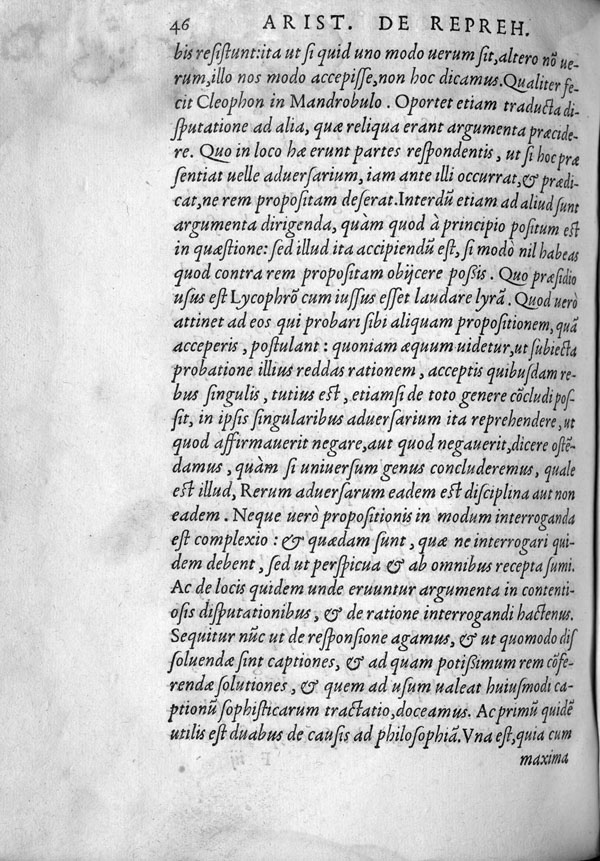 46 ARIST. DE REPREH.
bis resistunt: ita ut si quid uno modo uerum sit, altero nõ ue-
rum, illo nos modo accepisse, non hoc dicamus. Qualiter fe-
cit Cleophon in Mandrobulo. Oportet etiam traducta di-
sputatione ad alia, quæ reliqua erant argumenta præcide-
re. Quo in loco hæ erunt partes respondentis, ut si hoc præ
sentiat uelle aduersarium, iam ante illi occurrat, & prædi-
cat, ne rem propositam deserat. Interdũ etiam ad aliud sunt
argumenta dirigenda, quàm quod à principio positum est
in quæstione: sed illud ita accipiendũ est, si modò nil habeas
quod contra rem propositam obijcere possis. Quo præsidio
usus est Lycophrõ cum iussus esset laudare lyrã. Quod uerò
attinet ad eos qui probari sibi aliquam propositionem, quã
acceperis, postulant: quoniam æquum uidetur, ut subiecta
probatione illius reddas rationem, acceptis quibusdam re-
bus singulis, tutius est, etiamsi de toto genere cõcludi pos-
sit, in ipsis singularibus aduersarium ita reprehendere, ut
quod affirmauerit negare, aut quod negauerit, dicere ostẽ-
damus, quàm si uniuersum genus concluderemus, quale
est illud, Rerum aduersarum eadem est disciplina aut non
eadem. Neque uerò propositionis in modum interroganda
est complexio: & quædam sunt, quæ ne interrogari qui-
dem debent, sed ut perspicua & ab omnibus recepta sumi.
Ac de locis quidem unde eruuntur argumenta in contenti-
osis disputationibus, & de ratione interrogandi hactenus.
Sequitur nũc ut de responsione agamus, & ut quomodo dis
soluendæ sint captiones, & ad quam potissimum rem cõfe-
rendæ solutiones, & quem ad usum ualeat huiusmodi ca-
ptionũ sophisticarum tractatio, doceamus. Ac primũ quidẽ
utilis est duabus de causis ad philosophiã. Vna est, quia cum
maxima